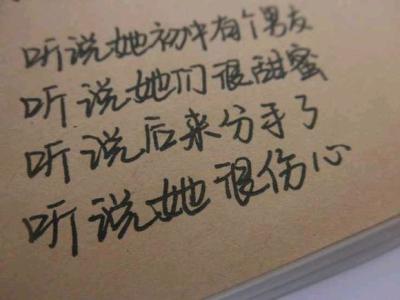 听说她初中有个男友
听说她们很甜蜜
听说后来分手了
听说她很伤心